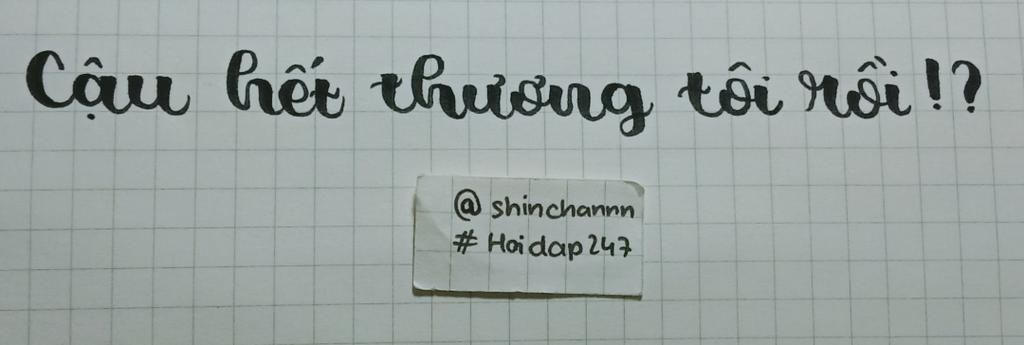 Cậu hết thương tôi rồi!?
@shinchannn
#Hoidap247